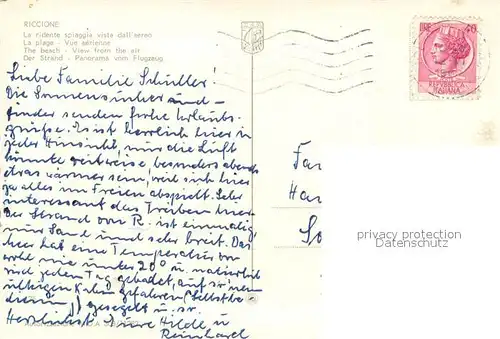 RICCIONE
La ridente spiaggia vista dall'aereo
La plage - Vue aérienne
The beach - View from the air
Der Strand - Panorama vom Flugzeug
Liebe Familie Schüller!
Die Sonnensucher und -
finder senden frohe Urlaubs-
grüße. Es ist herrlich hier in
jeder Hinsicht, nur die Luft
könnte zeitweise besonders abends
etwas wärmer sein, weil sich hier
ja alles im Freien abspielt. Sehr
interessant das Treiben hier.
Der Strand von R. ist einmalig
nur Sand und sehr breit. Das
Meer hat eine Temperatur von
wohl nie unter 20° u. natürlich
wird jeden Tag gebadet, auf
gefahren (Selbstbe
dienung) gesegelt u. s.
Herzlichst Eure Hilde u
Reinhard
LIRE 40
REPVBBLICA
ITALIANA
Fa
Ha
So
privacy protection
Datenschutz